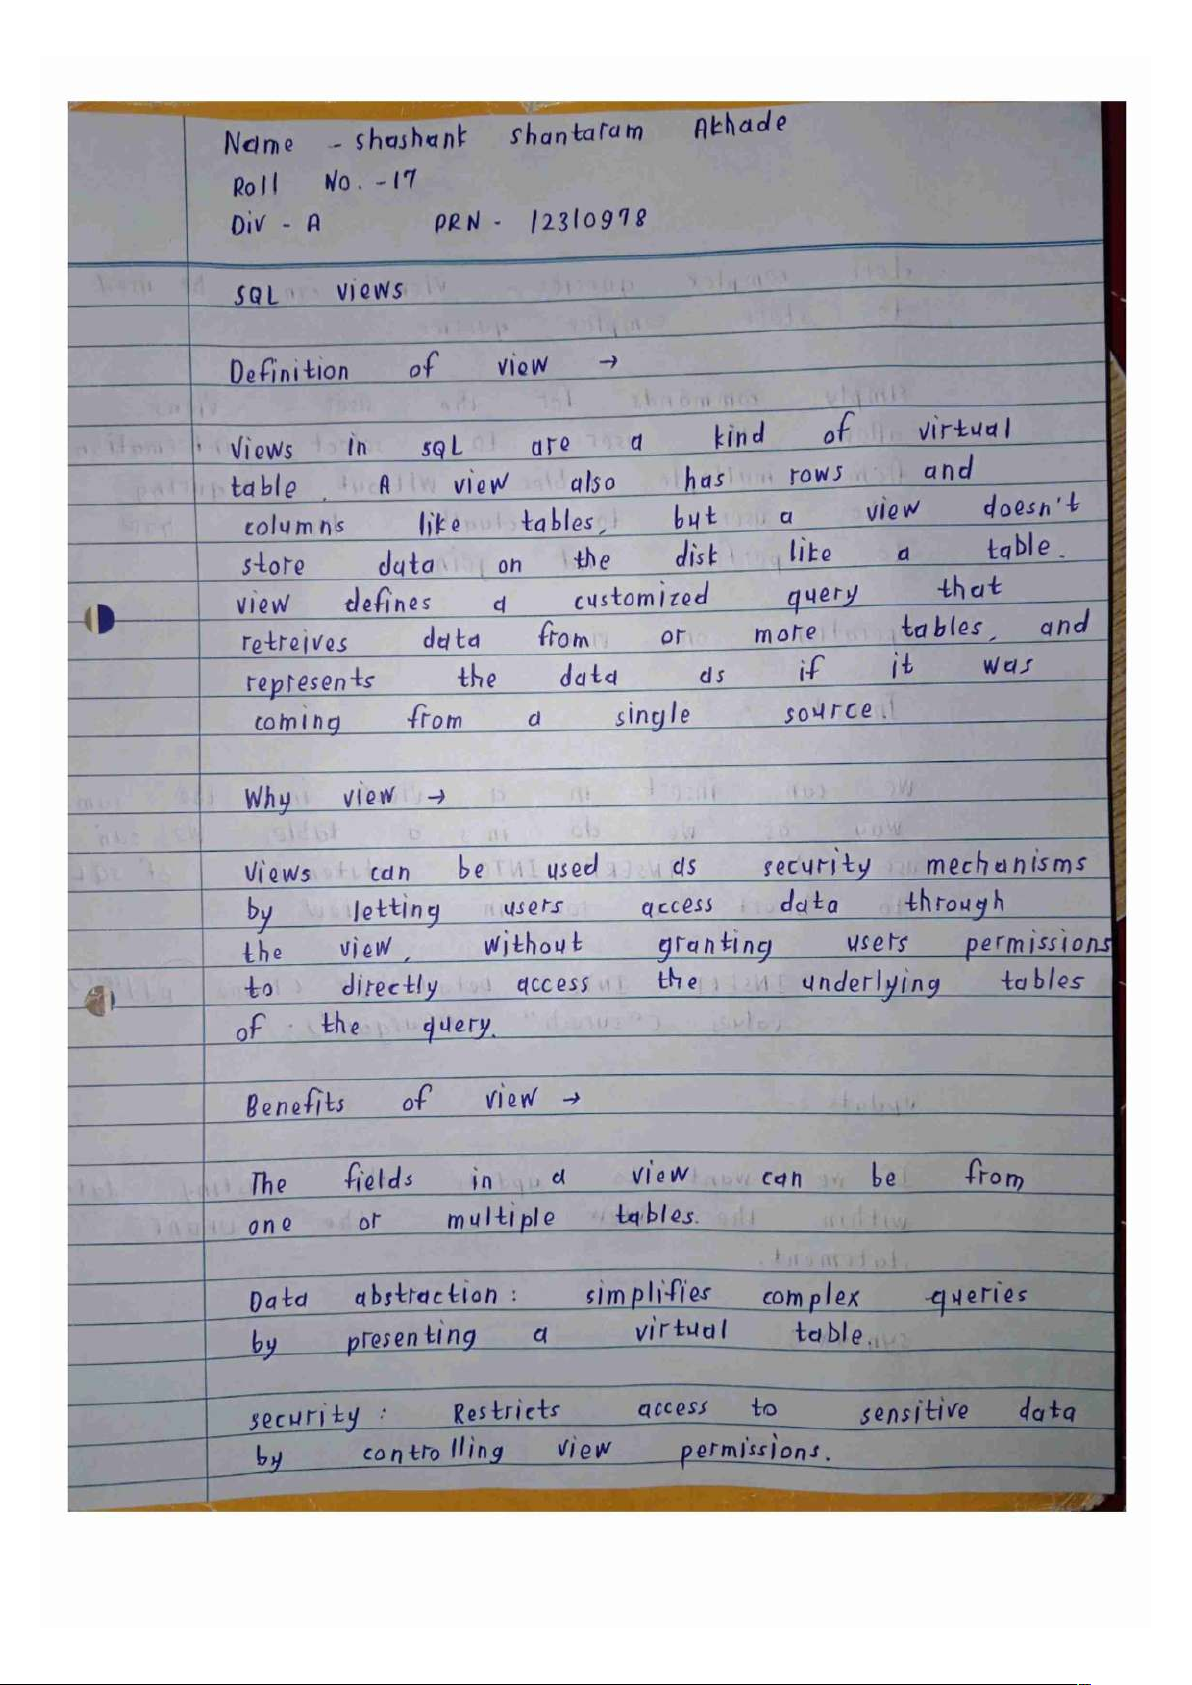 Name - Shashank Shantaram Akhade
Roll No. - 17
Div - A PRN - 12310978
SQL views
Definition of view →
Views in SQL are a kind of virtual
table. A view also has rows and
columns like tables, but a view doesn't
store data on the disk like a table.
view defines a customized query that
retreives data from or more tables, and
represents the data as if it was
coming from a single source.
Why view →
Views can be used as security mechanisms
by letting users access data through
the view, without granting users permissions
to directly access the underlying tables
of the query.
Benefits of view →
The fields in a view can be from
one or multiple tables.
Data abstraction : simplifies complex queries
by presenting a virtual table.
security : Restricts access to sensitive data
by controlling view permissions.